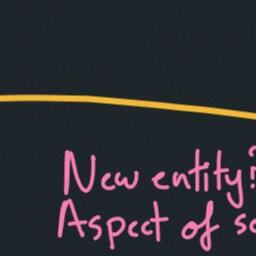 New entity?
Aspect of